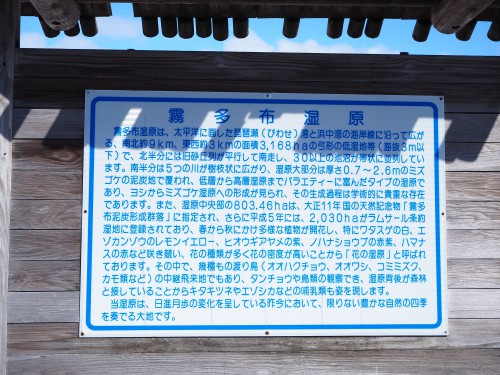 霧多布湿原
霧多布湿原は、太平洋に面した琵琶瀬(びわせ)湾と浜中湾の海岸線に沿って広が
る、南北約9km、東西約3kmの面積3,168haの弓形の低湿地帯(海抜3m以
下)で、北半分には旧砂丘列が平行して南走し、30以上の池沼が帯状に並列してい
ます。南半分は5つの川が樹枝状に広がり、湿原大部分は厚さ0.7~2.6mのミズ
ゴケの泥炭地で覆われ、低層から高層湿原までバラエティーに富んだタイプの湿原で
あり、ヨシからミズゴケ湿原への形成が見られ、その生成過程は学術的に貴重な存在
であります。また、湿原中央部の803.46haは、大正11年国の天然記念物「霧
多布泥炭形成群落」に指定され、さらに平成5年には、2,030haがラムサール条約
湿地に登録されており、春から秋にかけ多様な植物が開花し、特にワタスゲの白、エ
ゾカンゾウのレモンイエロー、ヒオウギアヤメの紫、ノハナショウブの赤紫、ハマナ
スの赤など咲き競い、花の種類が多く花の密度が高いことから「花の湿原」と呼ばれ
ております。その中で、幾種もの渡り鳥(オオハクチョウ、オオワシ、コミミズク、
カモ類など)の中継飛来地でもあり、タンチョウや鳥類の観察でき、湿原背後が森林
と接していることからキタキツネやエゾシカなどの哺乳類も姿を現します。
当湿原は、日進月歩の変化を呈している昨今において、限りない豊かな自然の四季
を奏でる大地です。